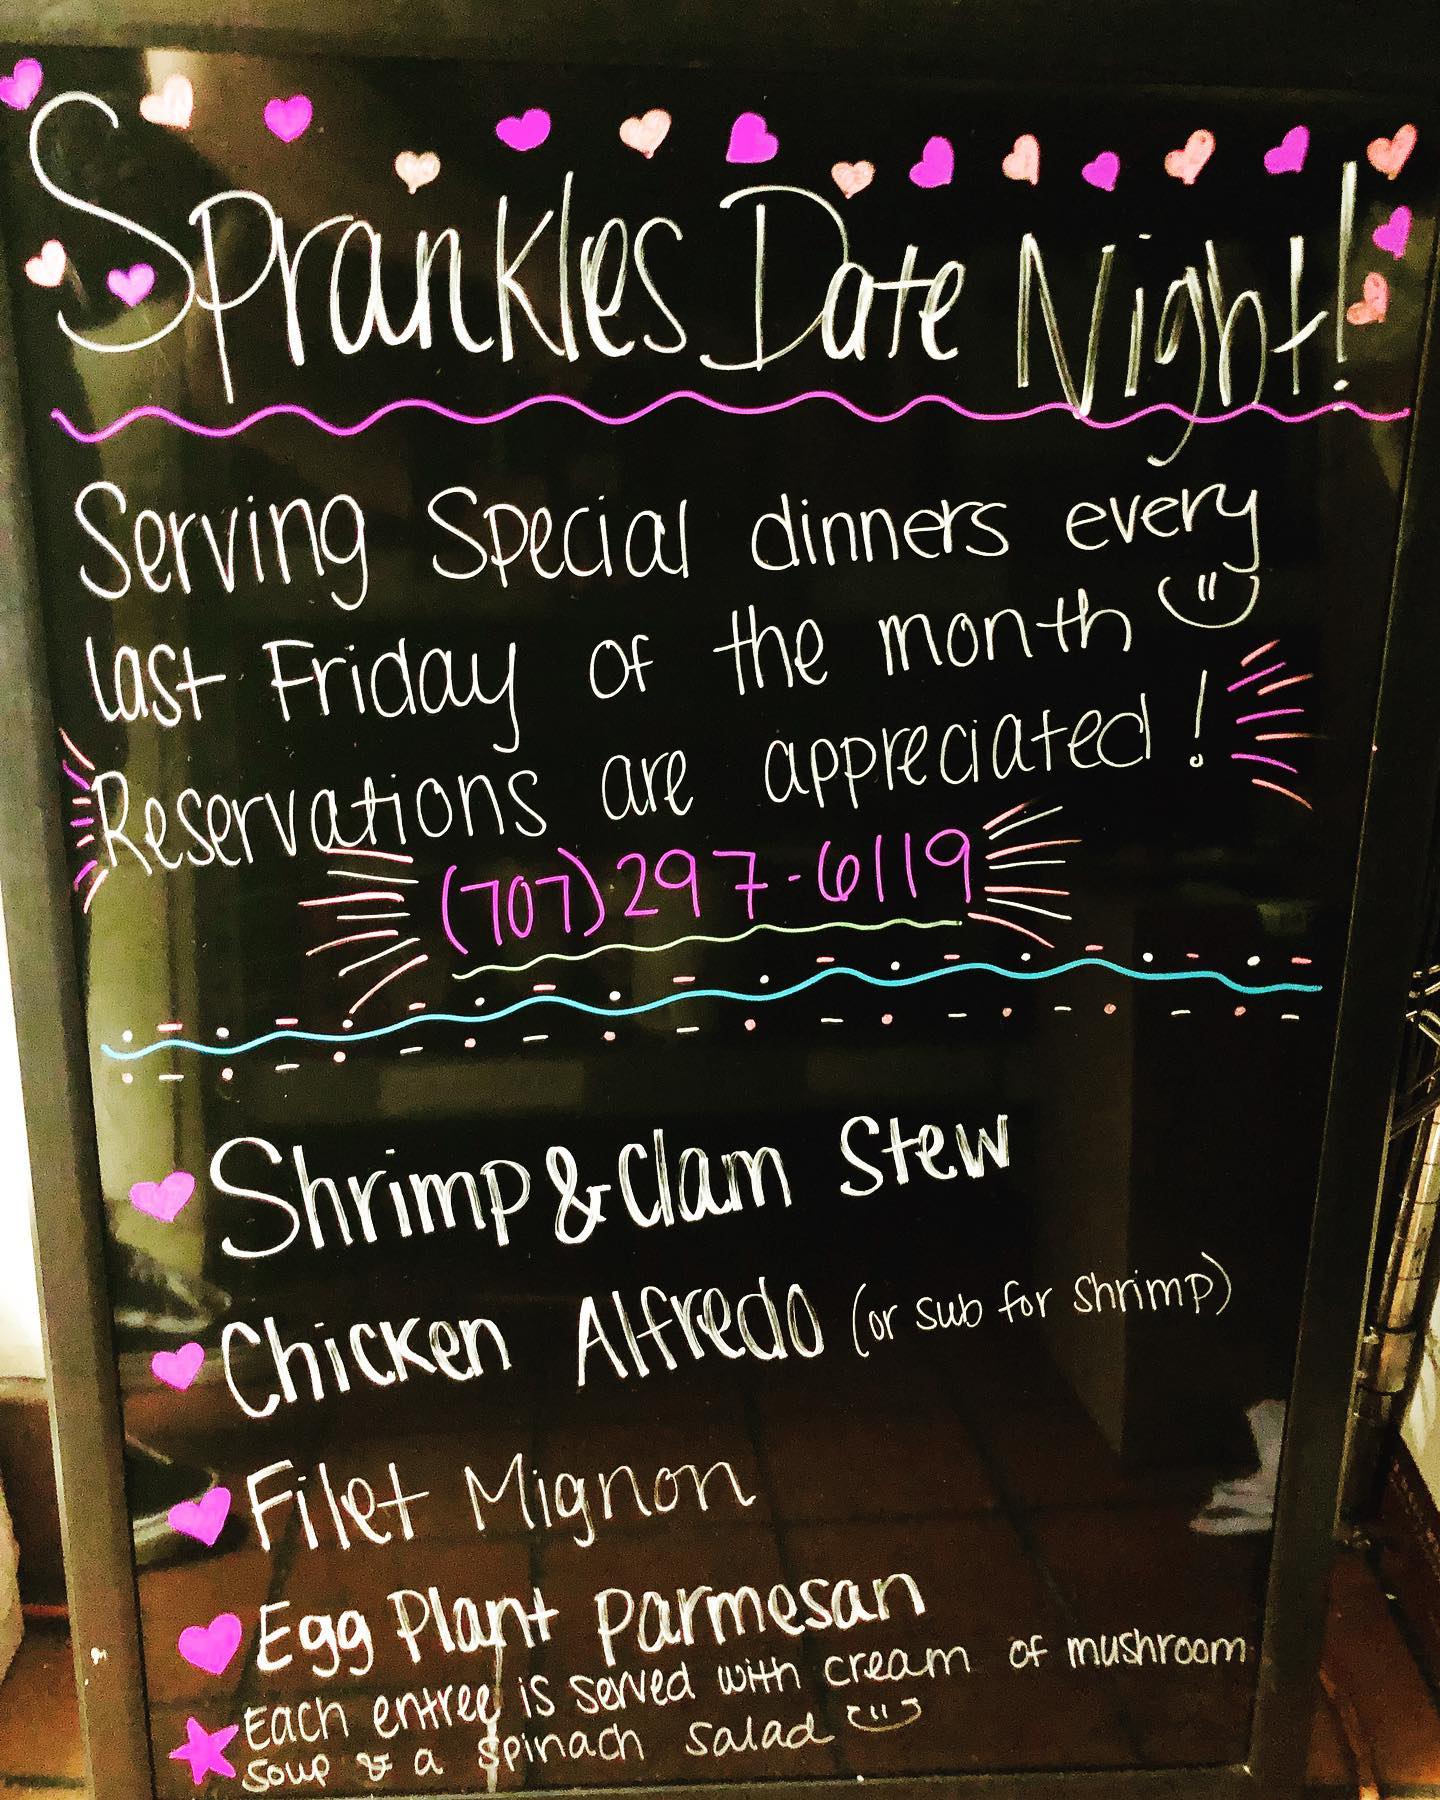 Sprankles Date Night!
Serving Special dinners every
last Friday of the month
Reservations are appreciated!
(707)297-6119
Shrimp & Clam Stew
Chicken Alfredo (or sub for shrimp)
Filet Mignon
Egg Plant Parmesan
Each entree is served with cream of mushroom
soup & a spinach salad